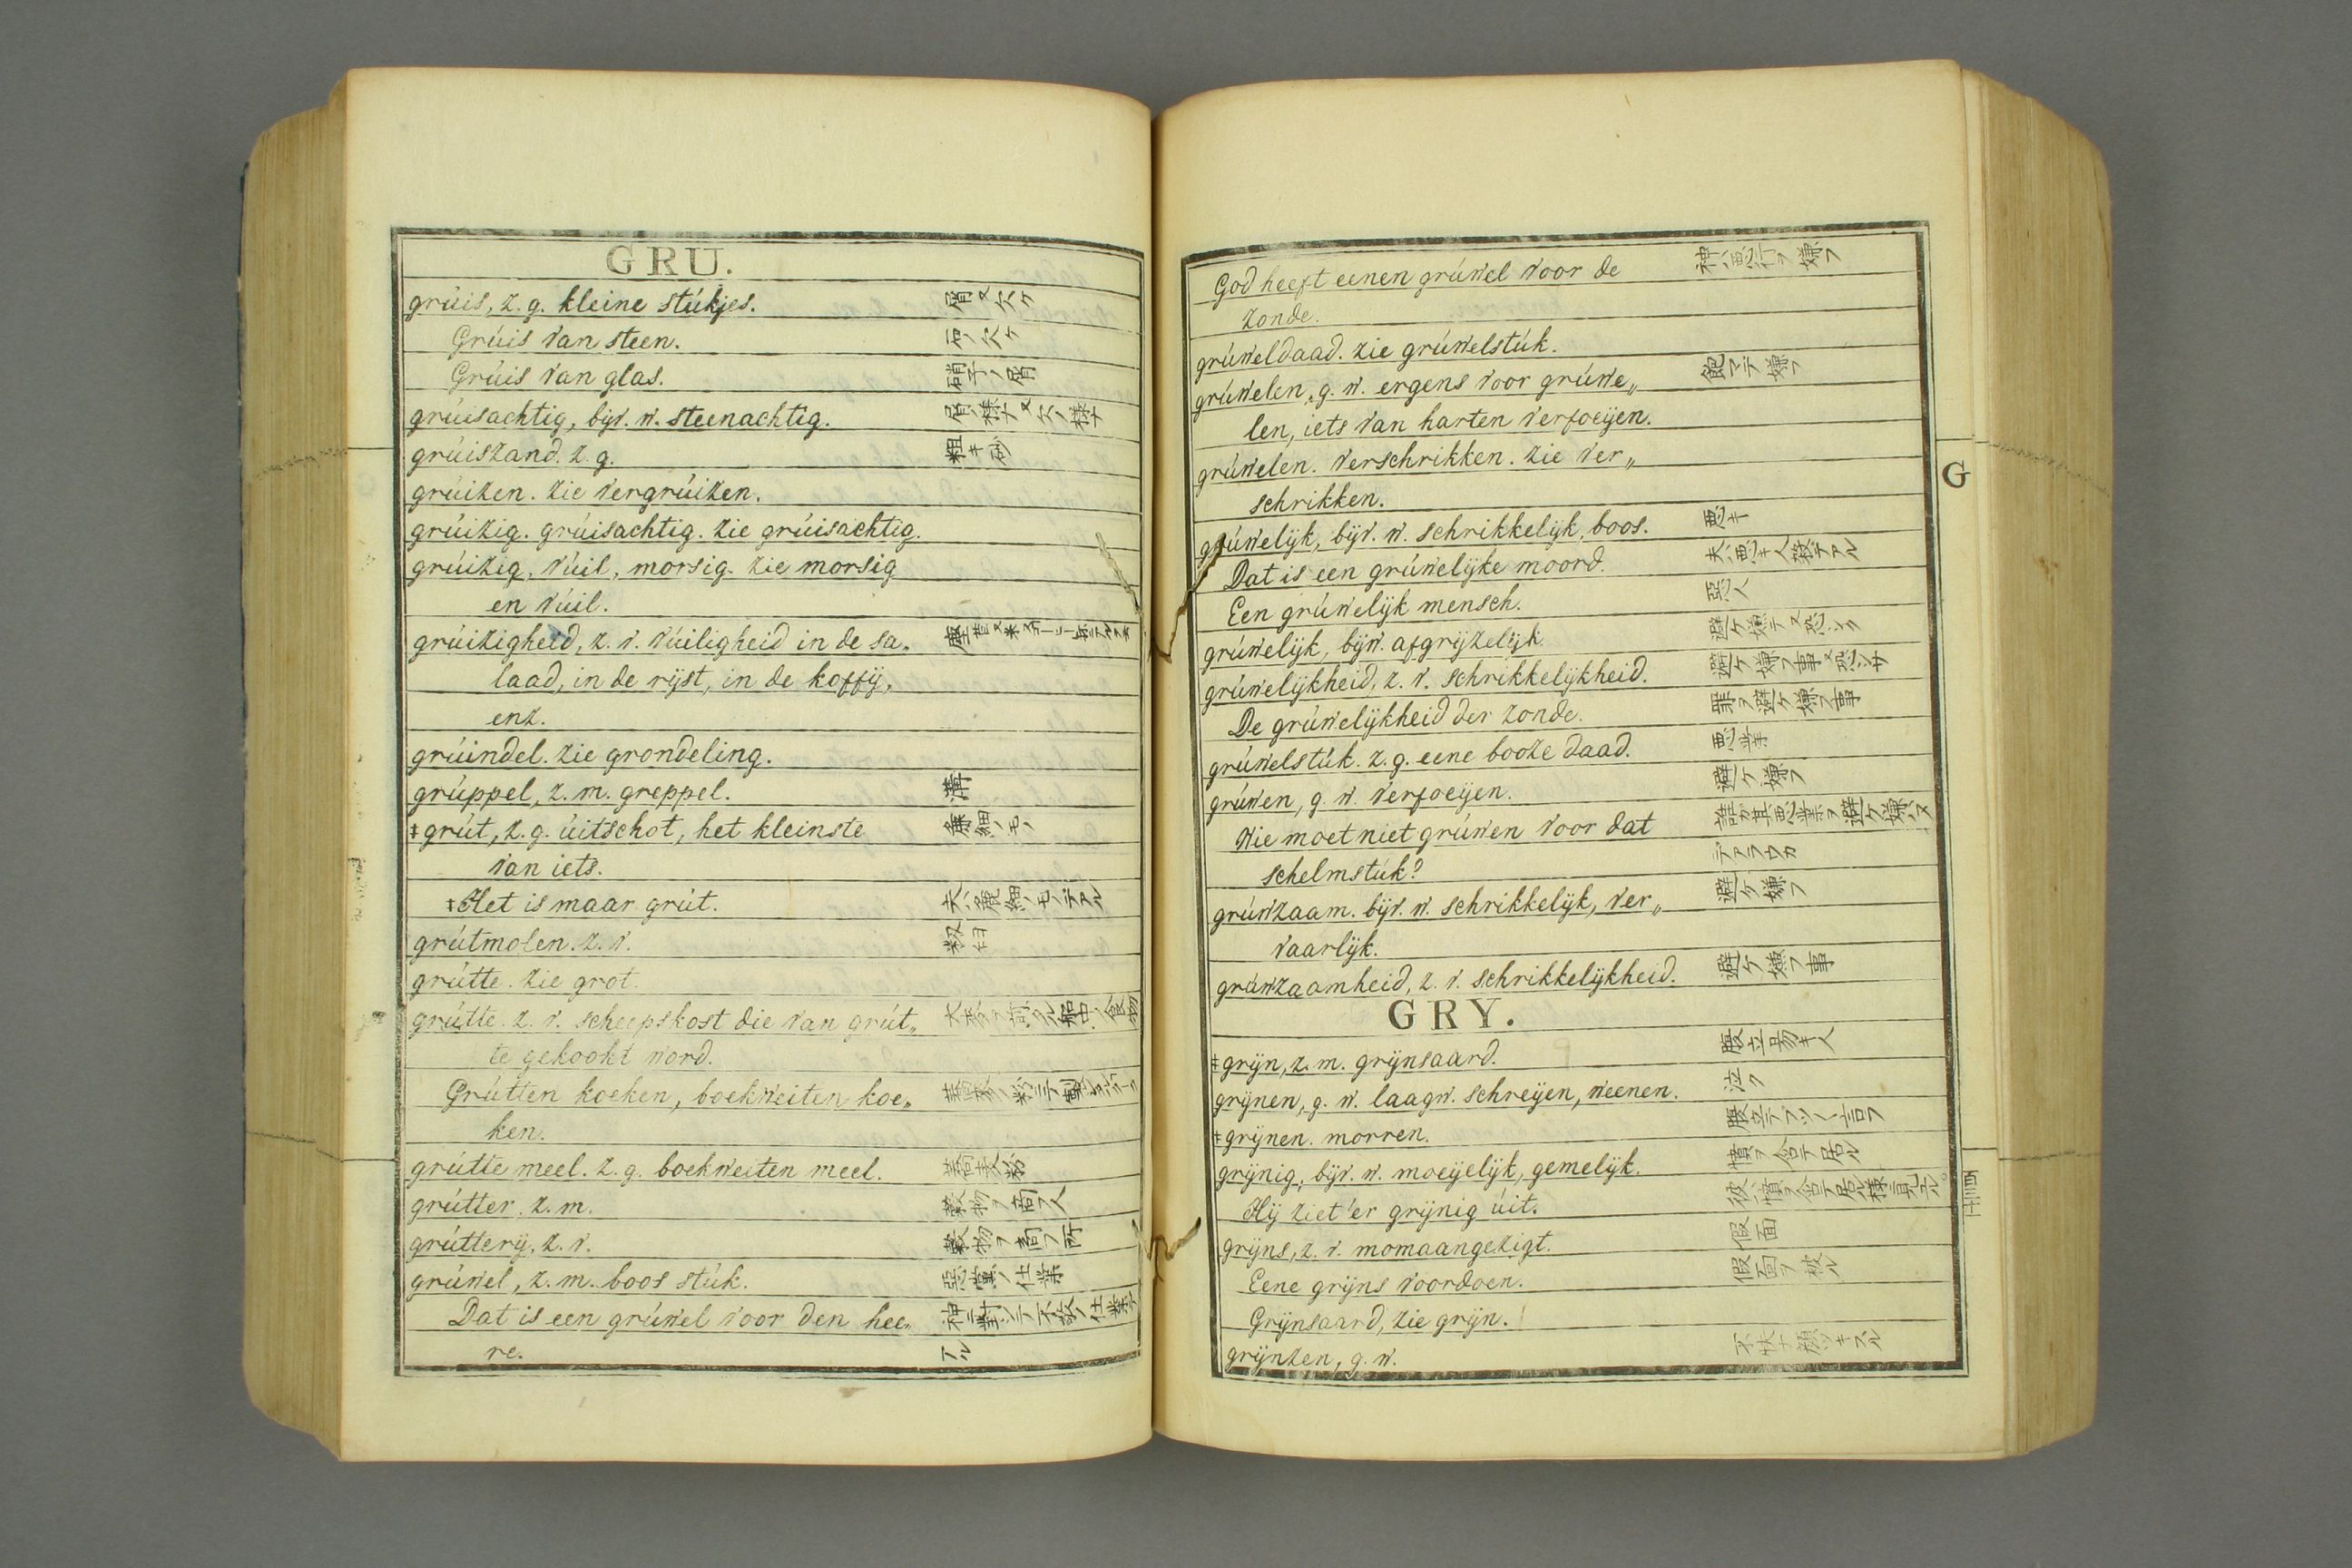 GRU.
grúis, z. g. kleine stúkjes. 屑又欠ケ
Grúis van steen. 石ノ欠ケ
Grúis van glas. 硝子ノ屑
grúisachtig, bijv. w. steenachtig. 屑ノ様ナ又欠ノ様ナ
grúiszand. z. g. 粗キ砂
grúizen. zie vergrúizen.
grúizig. grúisachtig. zie grúisachtig.
grúizig, vúil, morsig. zie morsig
en vúil.
grúizigheid, z. v. vúiligheid in de sa„
laad, in de rijst, in de koffij,
enz.
grúindel. zie grondeling.
grúppel, z. m. greppel. 溝
‡grút, z. g. úitschot, het kleinste 細ノモノ
van iets.
‡Het is maar grút. 夫ハ麁細ノモノデアル
grútmolen. z. v.
grútte. zie grot.
grútte. z. v. scheepskost die van grút„
te gekookt word.
Grútten koeken, boekweiten koe„
ken.
grútte meel. z. g. boekweiten meel. 蕎麦粉
grútter. z. m. 穀物ヲ商フ人
grútterij, z. v. 穀物ヲ商フ所
grúwel, z. m. boos stúk. 惡黨ノ仕業
Dat is een grúwel voor den hee„ 神ニ對シテ不敬ノ仕業デ
re. アル
God heeft eenen grúwel voor de 神ハ悪行ヲ嫌フ
zonde.
grúweldaad. zie grúwelstúk.
grúwelen, g. w. ergens voor grúwe„ 飽マデ嫌フ
len, iets van harten verfoeijen.
grúwelen. verschrikken. zie ver„
schrikken.
grúwelijk, bijv. w. schrikkelijk, boos. 悪キ
Dat is een grúwelijke moord. 夫ハ悪キ人殺デアル
Een grúwelijk mensch. 惡人
grúwelijk, bijw. afgrijzelijk. 避ケ嫌テ又恐シク
grúwelijkheid, z. v. schrikkelijkheid. 避ケ嫌フ事又恐シサ
De grúwelijkheid der zonde. 罪ヲ避ケ嫌フ事
grúwelstúk. z. g. eene booze daad. 悪業
grúwen, g. w. verfoeijen. 避ケ嫌フ
Wie moet niet grúwen voor dat 誰ガ其悪業ヲ避ケ嫌ハヌ
schelmstúk? デアラウカ
grúwzaam. bijv. w. schrikkelijk, ver„ 避ケ嫌フ
vaarlijk.
grúwzaamheid, z. v. schrikkelijkheid. 避ケ嫌フ事
GRY.
‡grijn, z. m. grijnsaard. 腹立易キ人
grijnen, g. w. laagw. schreijen, weenen. 泣ク
‡grijnen. morren.
grijnig, bijv. w. moeijelijk, gemelijk. 憤ヲ含テ居ル
Hij ziet 'er grijnig úit. 彼ハ憤ヲ含テ居ル様ニ見ユル
grijns, z. v. momaangezigt. 假面
Eene grijns voordoen. 假面ヲ被ル
Grijnsaard, zie grijn.
grijnzen, g. w.
G